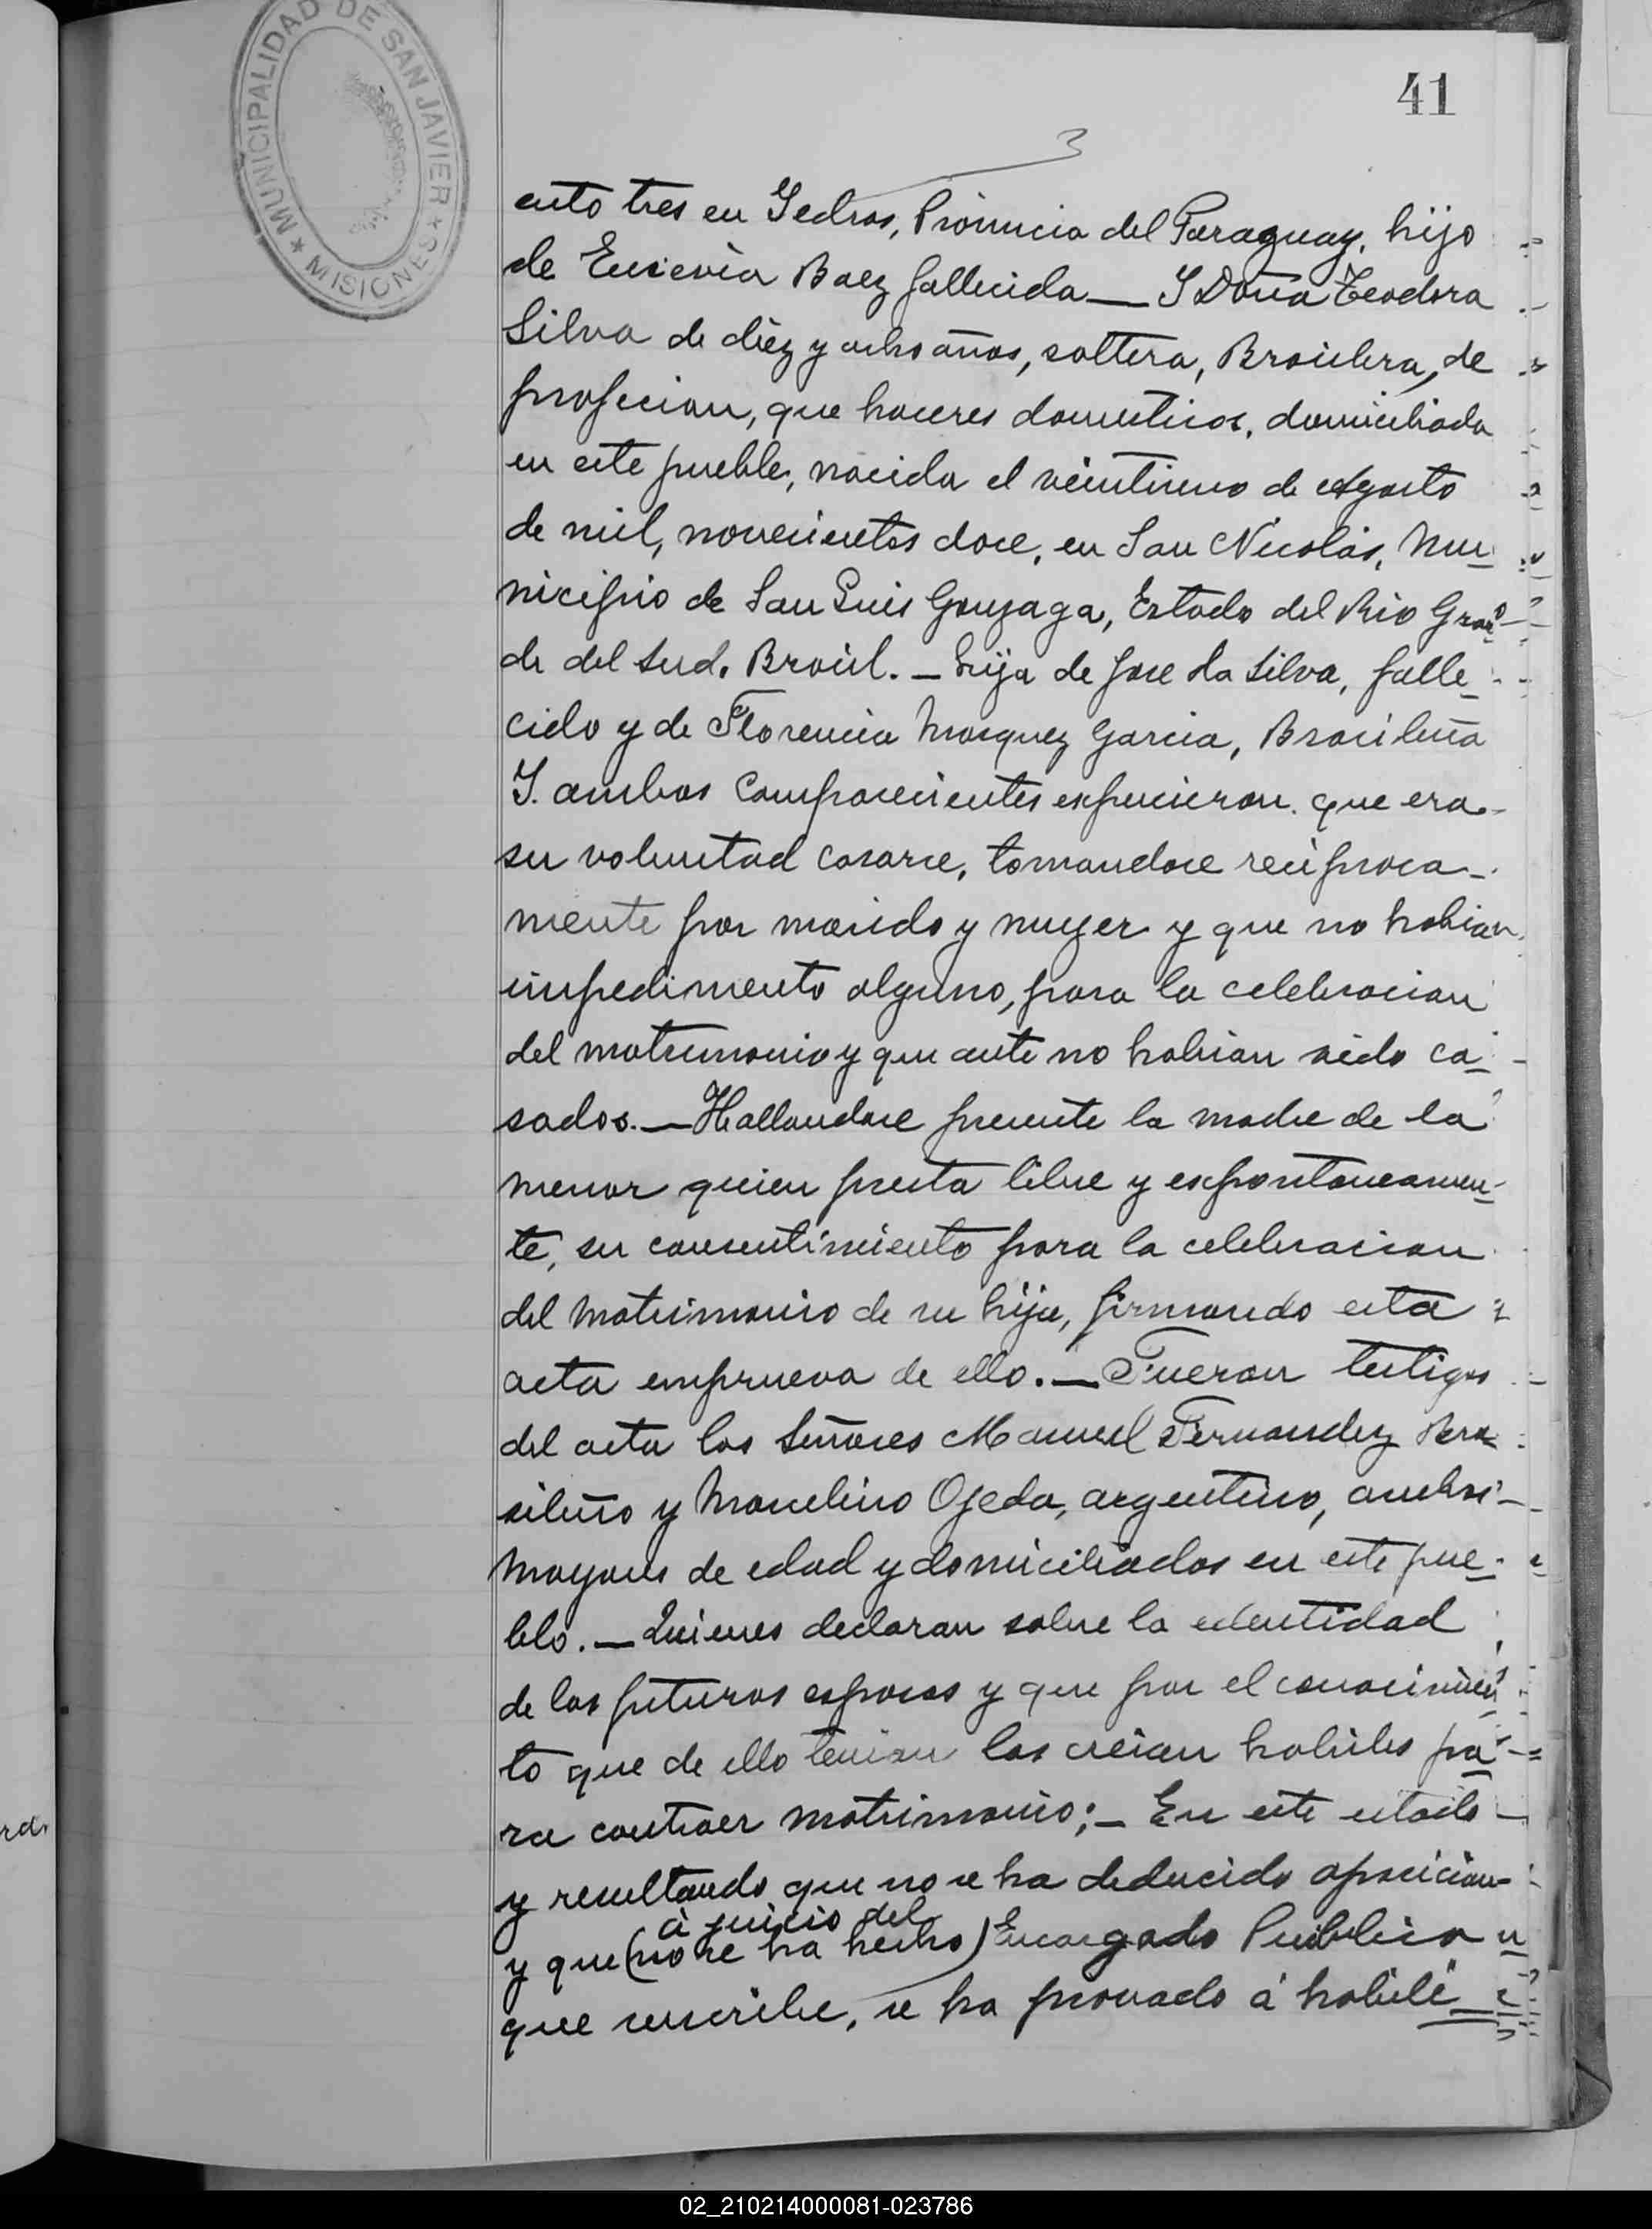 MUNICIPALIDAD DE SAN JAVIER ★ MISIONES ★
41
3
ento tres en Yedros, Província del Paraguay, hijo
de Eucevia Baez fallecida — Y Doña Teodora
Silva de diez y ocho años, soltera, Brasilera, de
profecion, que haceres domesticos, domiciliada
en este pueblo, nacida el veintinueve de Agosto
de mil, novecientos doce, en San Nicolás, Mu-
nicipio de San Luis Gonzaga, Estado del Rio Gran-
de del Sud. Brasil. — hija de Jose da Silva, falle-
cido y de Florencia Marquez Garcia, Brasileña
Y. ambos Comparecientes expucieron. que era
su voluntad casarce, tomandoce recíproca-
mente por marido y muger y que no habian
impedimento alguno, para la celebracion
del matrimonio y que ante no habian sido ca-
sados. — Hallandoce presente la madre de la
menor quien presta libre y expontaneamen-
te, su consentimiento para la celebracion
del matrimonio de su hija, firmando esta
acta emprueva de ello. — Fueron testigos
del acta los Señores Manuel Fernandez Bra-
sileño y Marcelino Ojeda, argentino, ambos
mayores de edad y domiciliados en este pue-
blo. — Quienes declaran sobre la edentidad
de los futuros esposos y que por el conocimien-
to que de ello tenian los creian habiles pa-
ra contraer matrimonio; — En este estado
y resultando que no se ha deducido oposicion
à juicio del
y que (no se ha hecho) Encargado Publico
que suscribe, se ha provado á habile
rd.
02_210214000081-023786